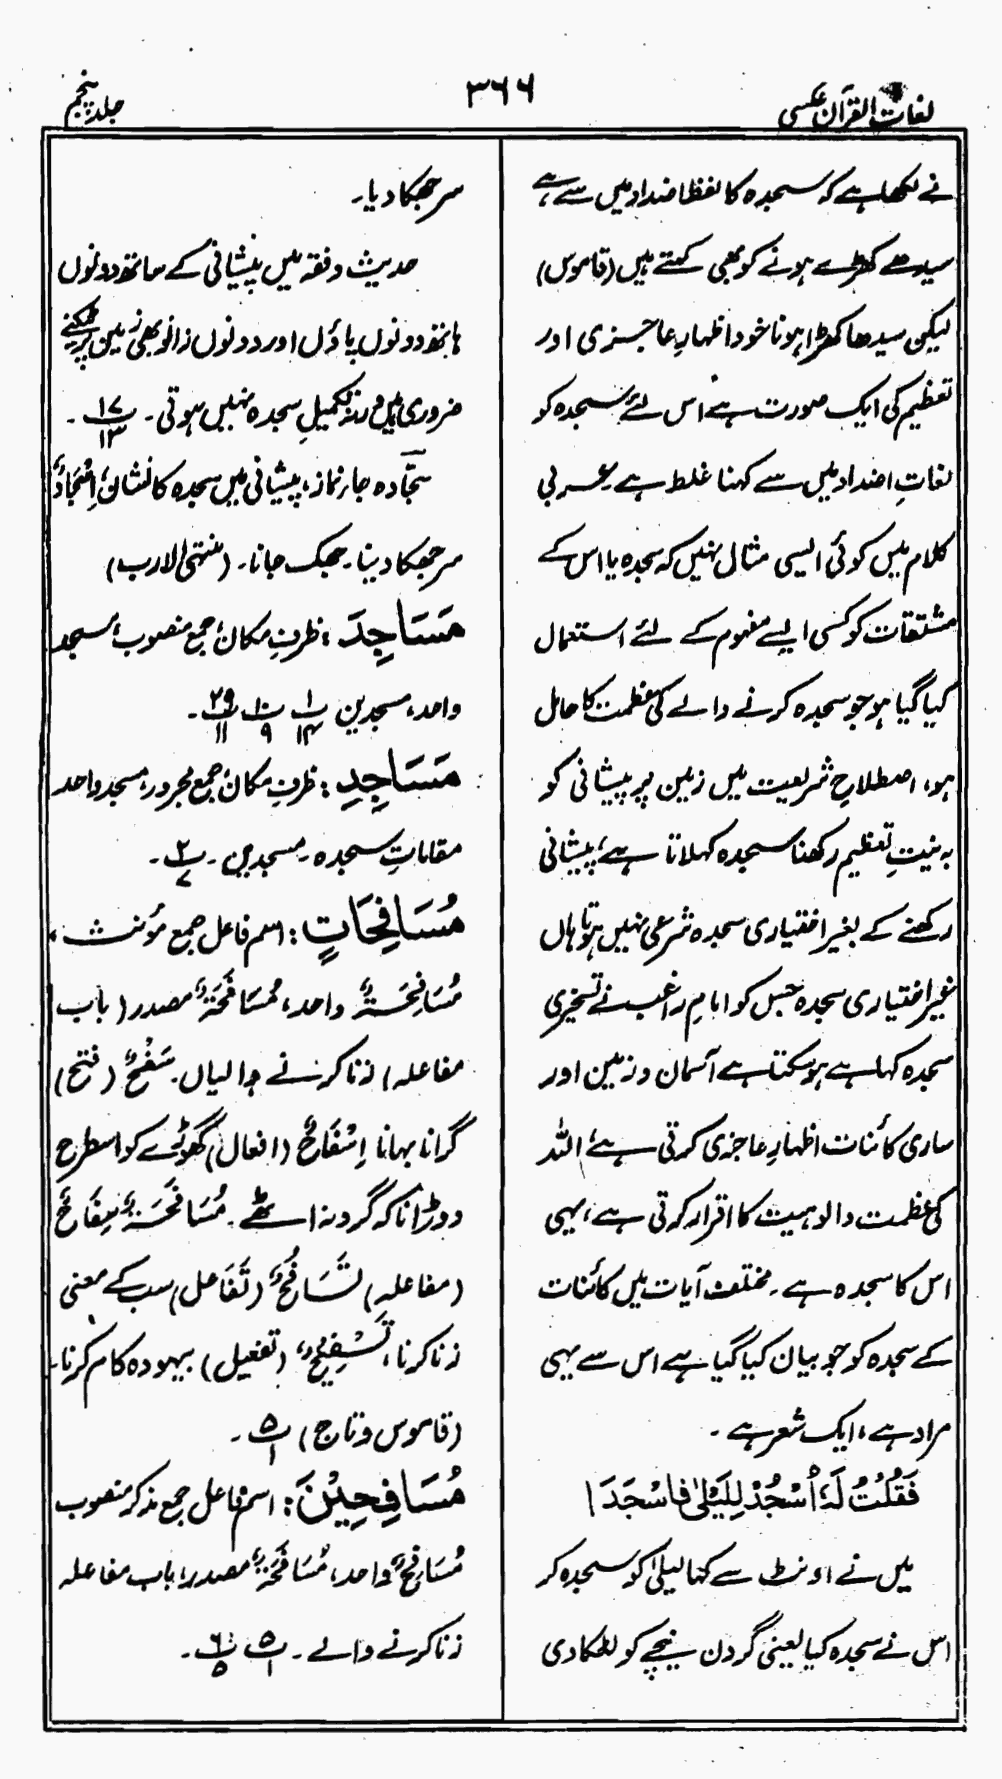 لغات القرآن عکسی
۳۶۶
جلد پنجم
نے لکھا ہے کہ سجدہ کا لفظ اضداد میں سے ہے
سیدھے کھڑے ہونے کو بھی کہتے ہیں (قاموس)
لیکن سیدھا کھڑا ہونا خود اظہارِ عاجزی اور
تعظیم کی ایک صورت ہے اس لئے سجدہ کو
لغاتِ اضداد میں سے کہنا غلط ہے۔ عربی
کلام میں کوئی ایسی مثال نہیں کہ سجدہ یا اس کے
مشتقات کو کسی ایسے مفہوم کے لئے استعمال
کیا گیا ہو جو سجدہ کرنے والے کی عظمت کا حامل
ہو، اصطلاحِ شریعت میں زمین پر پیشانی کو
بہ نیتِ تعظیم رکھنا سجدہ کہلاتا ہے، پیشانی
رکھنے کے بغیر اختیاری سجدہ شرعی نہیں ہوتا ہاں
غیر اختیاری سجدہ جس کو امام راغب نے تسخیری
سجدہ کہا ہے ہو سکتا ہے آسمان و زمین اور
ساری کائنات اظہارِ عاجزی کرتی ہے، اللہ
کی عظمت و الوہیت کا اقرار کرتی ہے، یہی
اس کا سجدہ ہے۔ مختلف آیات میں کائنات
کے سجدہ کو جو بیان کیا گیا ہے اس سے یہی
مراد ہے، ایک شعر ہے۔
فَقُلْتُ لَهٗ اُسْجُدْ لِلَيْلٰى فَاسْجَدَا
میں نے اونٹ سے کہا لیلیٰ کو سجدہ کر
اس نے سجدہ کیا یعنی گردن نیچے کو لٹکا دی
سر جھکا دیا۔
حدیث و فقہ میں پیشانی کے ساتھ دونوں
ہاتھ دونوں پاؤں اور دونوں زانو بھی زمین پر ٹکنے
ضروری ہیں ورنہ تکمیلِ سجدہ نہیں ہوتی۔ پ۱۷/۱۳۔
سجّادہ جائے نماز، پیشانی میں سجدہ کا نشان، اِسْجَادٌ
سر جھکا دینا۔ جھک جانا۔ (منتہی الارب)
مَسَاجِدَ: ظرفِ مکان، جمع منصوب، مسجد
واحد، مسجدیں پ۱/۱۴ پ۱۰/۹ پ۲۹/۱۱۔
مَسَاجِدِ: ظرفِ مکان، جمع مجرور، مسجد واحد
مقاماتِ سجدہ۔ مسجدیں۔ پ۲/۷۔
مُسَافِحَاتٍ: اسم فاعل جمع مؤنث،
مُسَافِحَةٌ واحد، مُسَافَحَةٌ مصدر (باب
مفاعلہ) زنا کرنے والیاں۔ سَفْحٌ (فتح)
گرانا بہانا اِسْفَاحٌ (افعال) گھوڑے کو اسطرح
دوڑانا کہ گرد نہ اٹھے۔ مُسَافَحَةٌ، سِفَاحٌ
(مفاعلہ) تَسَافُحٌ (تَفَاعل) سب کے معنی
زنا کرنا، تَسْفِيْحٌ (تفعیل) بیہودہ کام کرنا۔
(قاموس و تاج) پ۵/۱۔
مُسَافِحِيْنَ: اسم فاعل جمع مذکر منصوب
مُسَافِحٌ واحد، مُسَافَحَةٌ مصدر، باب مفاعلہ
زنا کرنے والے۔ پ۵/۱ پ۶/۵۔